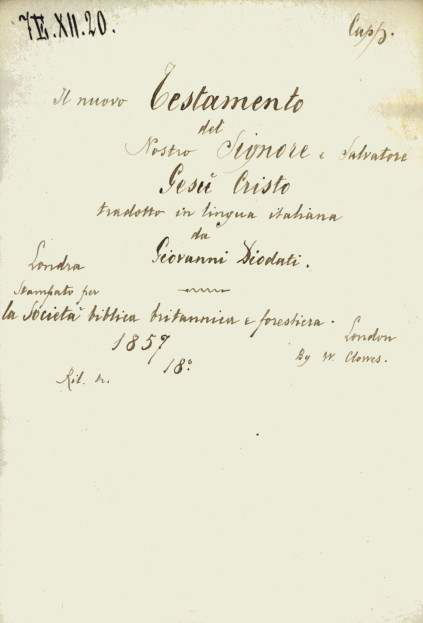 7E.XII.20. Capp.
Il nuovo Testamento
del
Nostro Signore e Salvatore
Gesù Cristo
tradotto in lingua italiana
da
Giovanni Diodati.
Londra
Stampato per
la Società biblica britannica e forestiera.
1857
London
By W. Clowes.
18°
Ril. n.